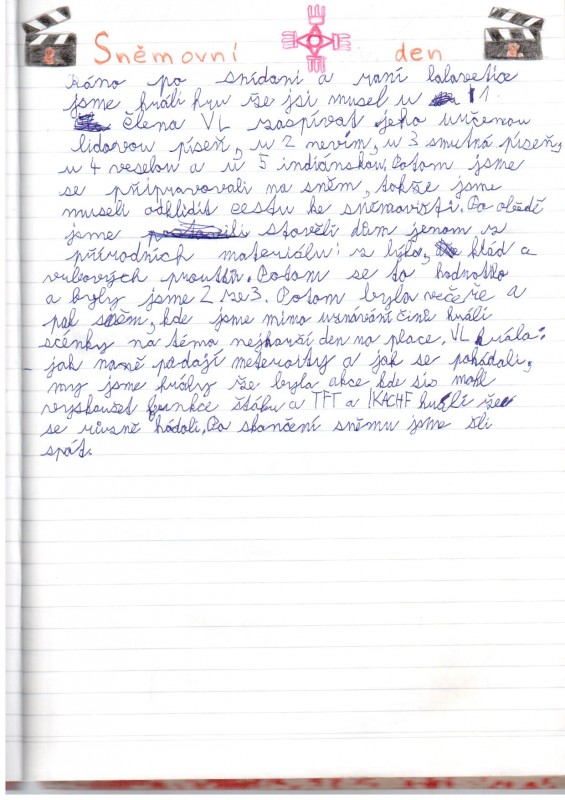 Sněmovní den
Ráno po snídani a raní lalavetice
jsme hráli hru že jsi musel u 1
člena VL zaspívat jeho určenou
lidovou píseň, u 2 nevím, u 3 smutná píseň,
u 4 veselou a u 5 indiánskou. Potom jsme
se připravovali na sněm, takže jsme
museli odklidit cestu ke sněmovišti. Po obědě
jsme stověli dům jenom z
přírodních materiálů: z lýka, klád a
vrbových proutků. Potom se to hodnotilo
a byly jsme 2 ze 3. Potom byla večeře a
pak sněm, kde jsme mimo uznávání činů hráli
scénky na téma nejhorší den na place. VL hrála:
jak na ně padají meteority a jak se pohádali,
my jsme hrály že byla akce kde sis mohl
vyskoušet funkce štábu a TFT a KACHF hráli že
se různě hádali. Po skončení sněmu jsme šli
spát.